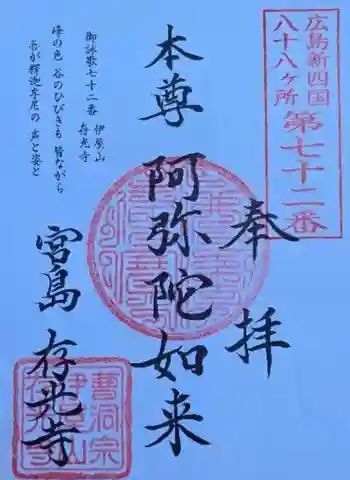 広島新四国
八十八ヶ所
第七十二番
奉拝
本尊 阿弥陀如来
宮島 存光寺
御詠歌七十二番 伊屋山
存光寺
峰の色 谷のひびきも 皆ながら
吾が釋迦牟尼の 声と姿と
曹洞宗